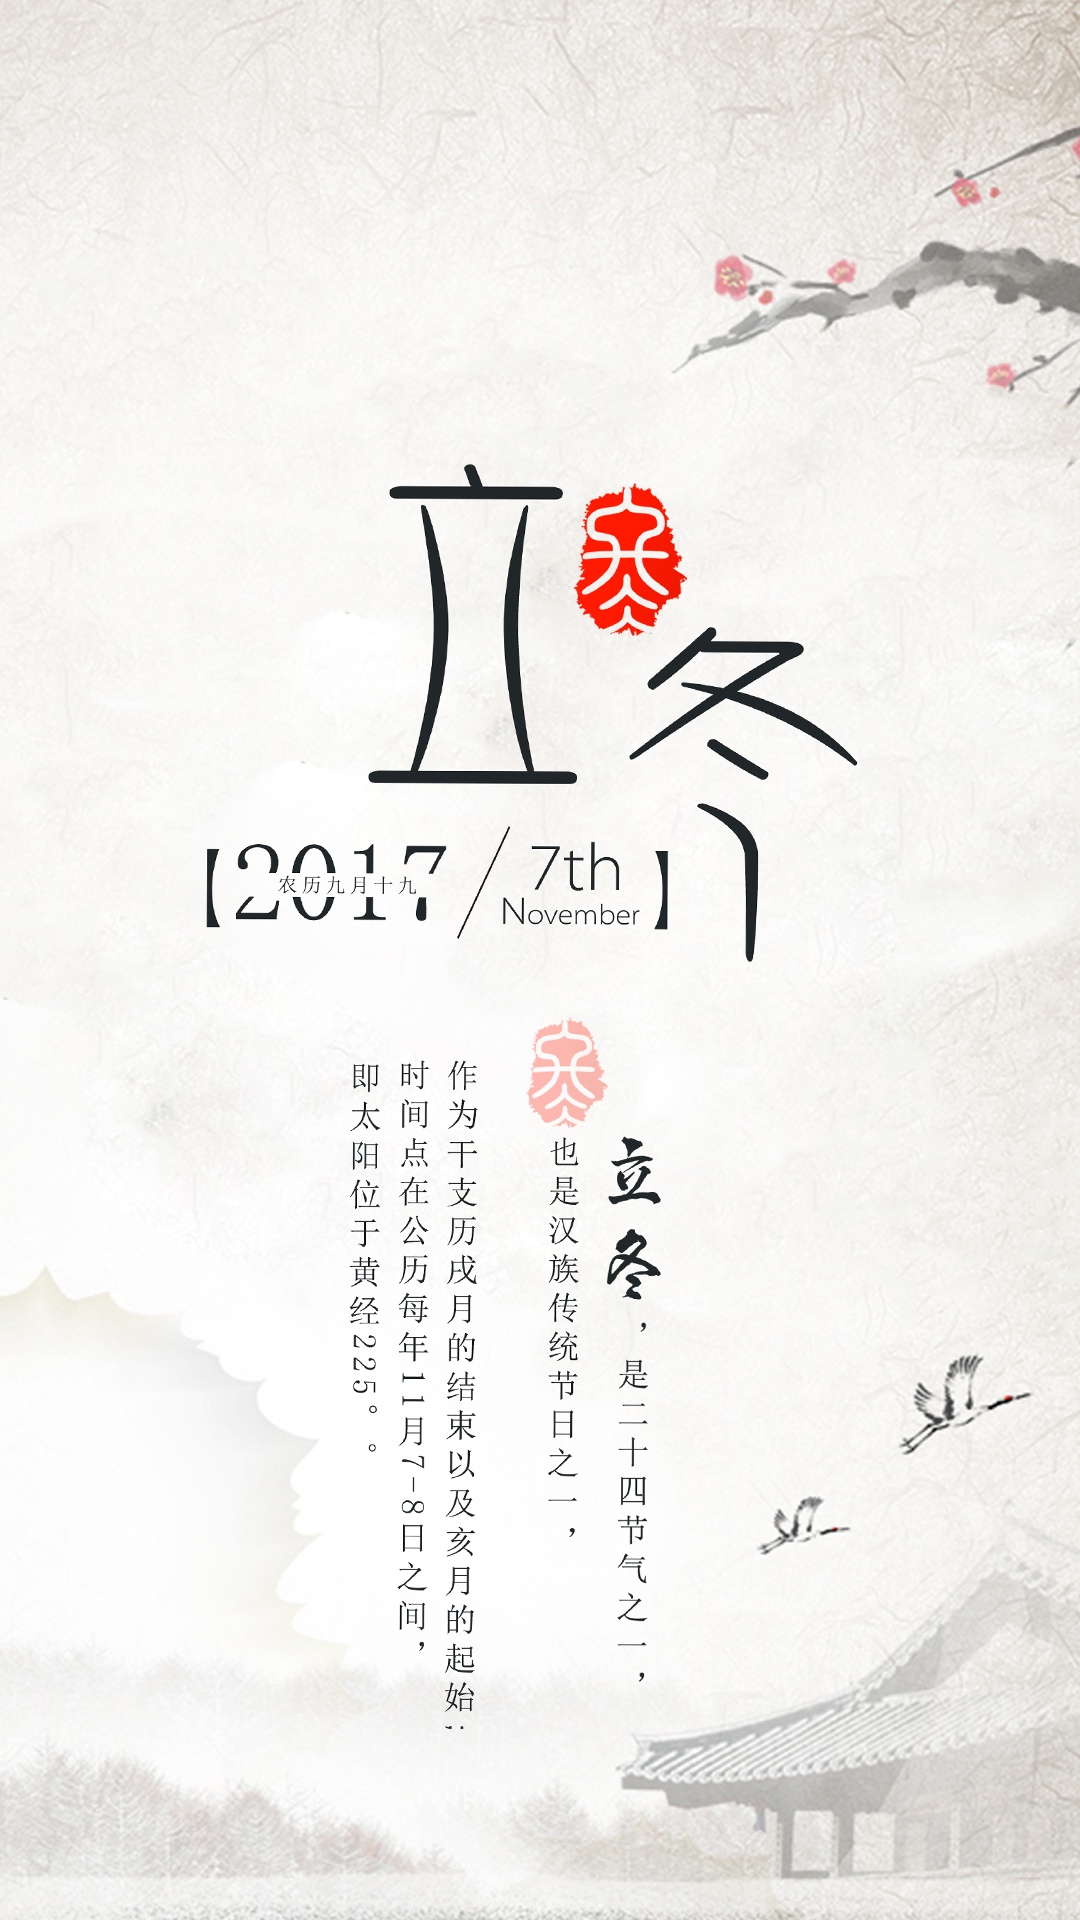 立冬
冬
【2017/7th November】
农历九月十九
冬
立冬，是二十四节气之一，
也是汉族传统节日之一，
作为干支历戌月的结束以及亥月的起始；
时间点在公历每年11月7-8日之间，
即太阳位于黄经225°。